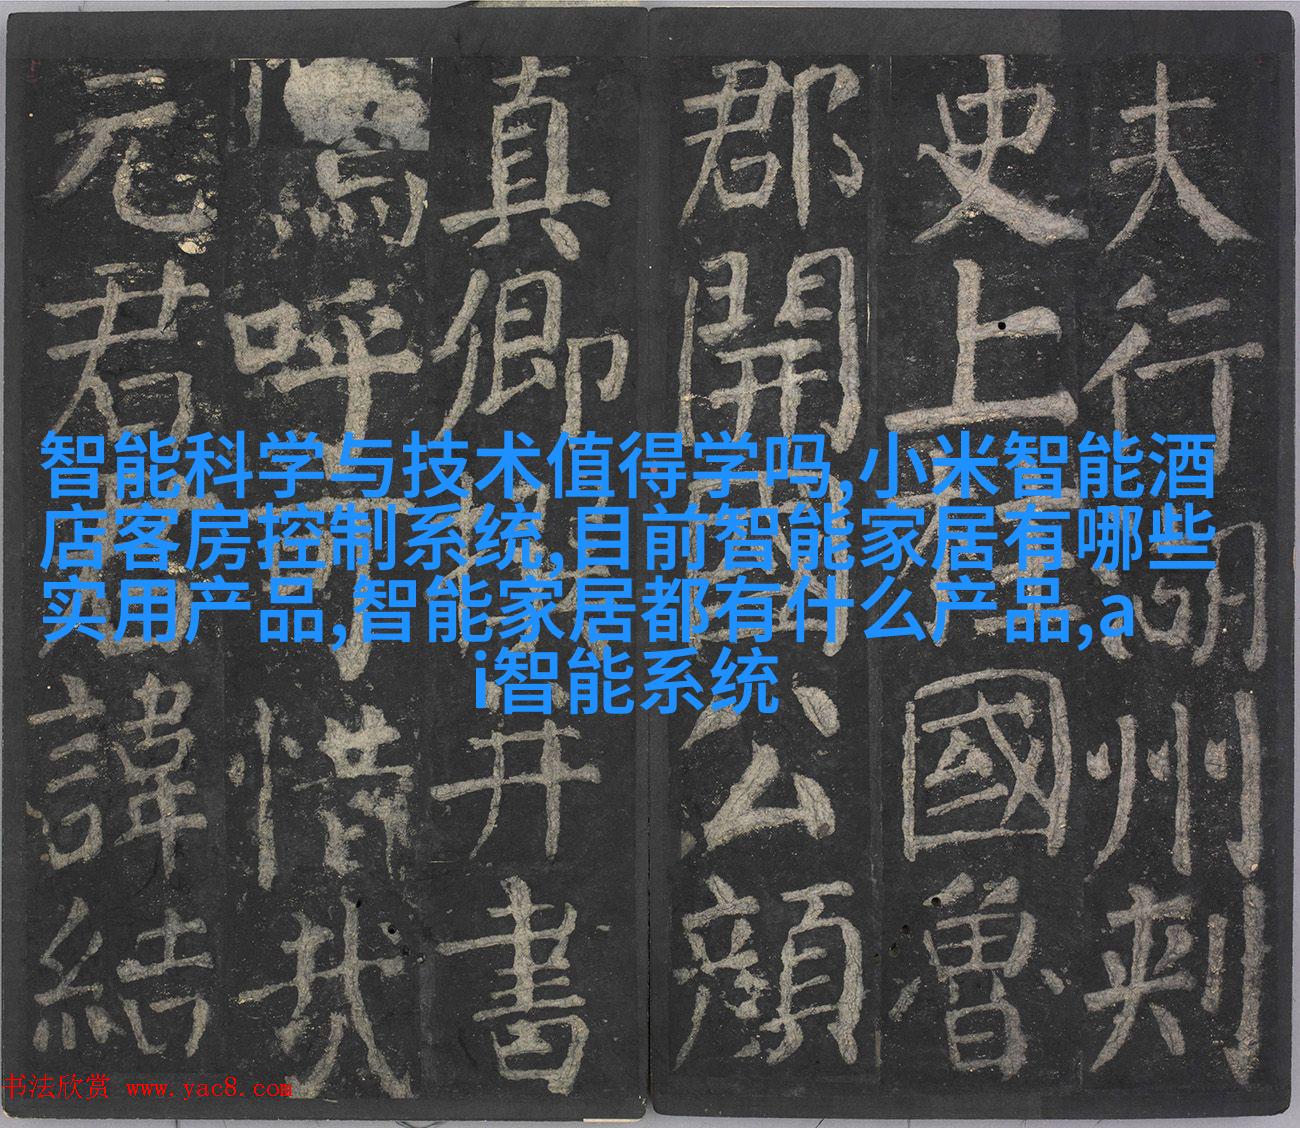 夫行湖州刺
史上柱國魯
郡開國公顏
真卿撰并書
嗚呼可惜哉
元君君諱結
智能科学与技术值得学吗,小米智能酒
店客房控制系统,目前智能家居有哪些
实用产品,智能家居都有什么产品,a
i智能系统
书法欣赏 www.yac8.com